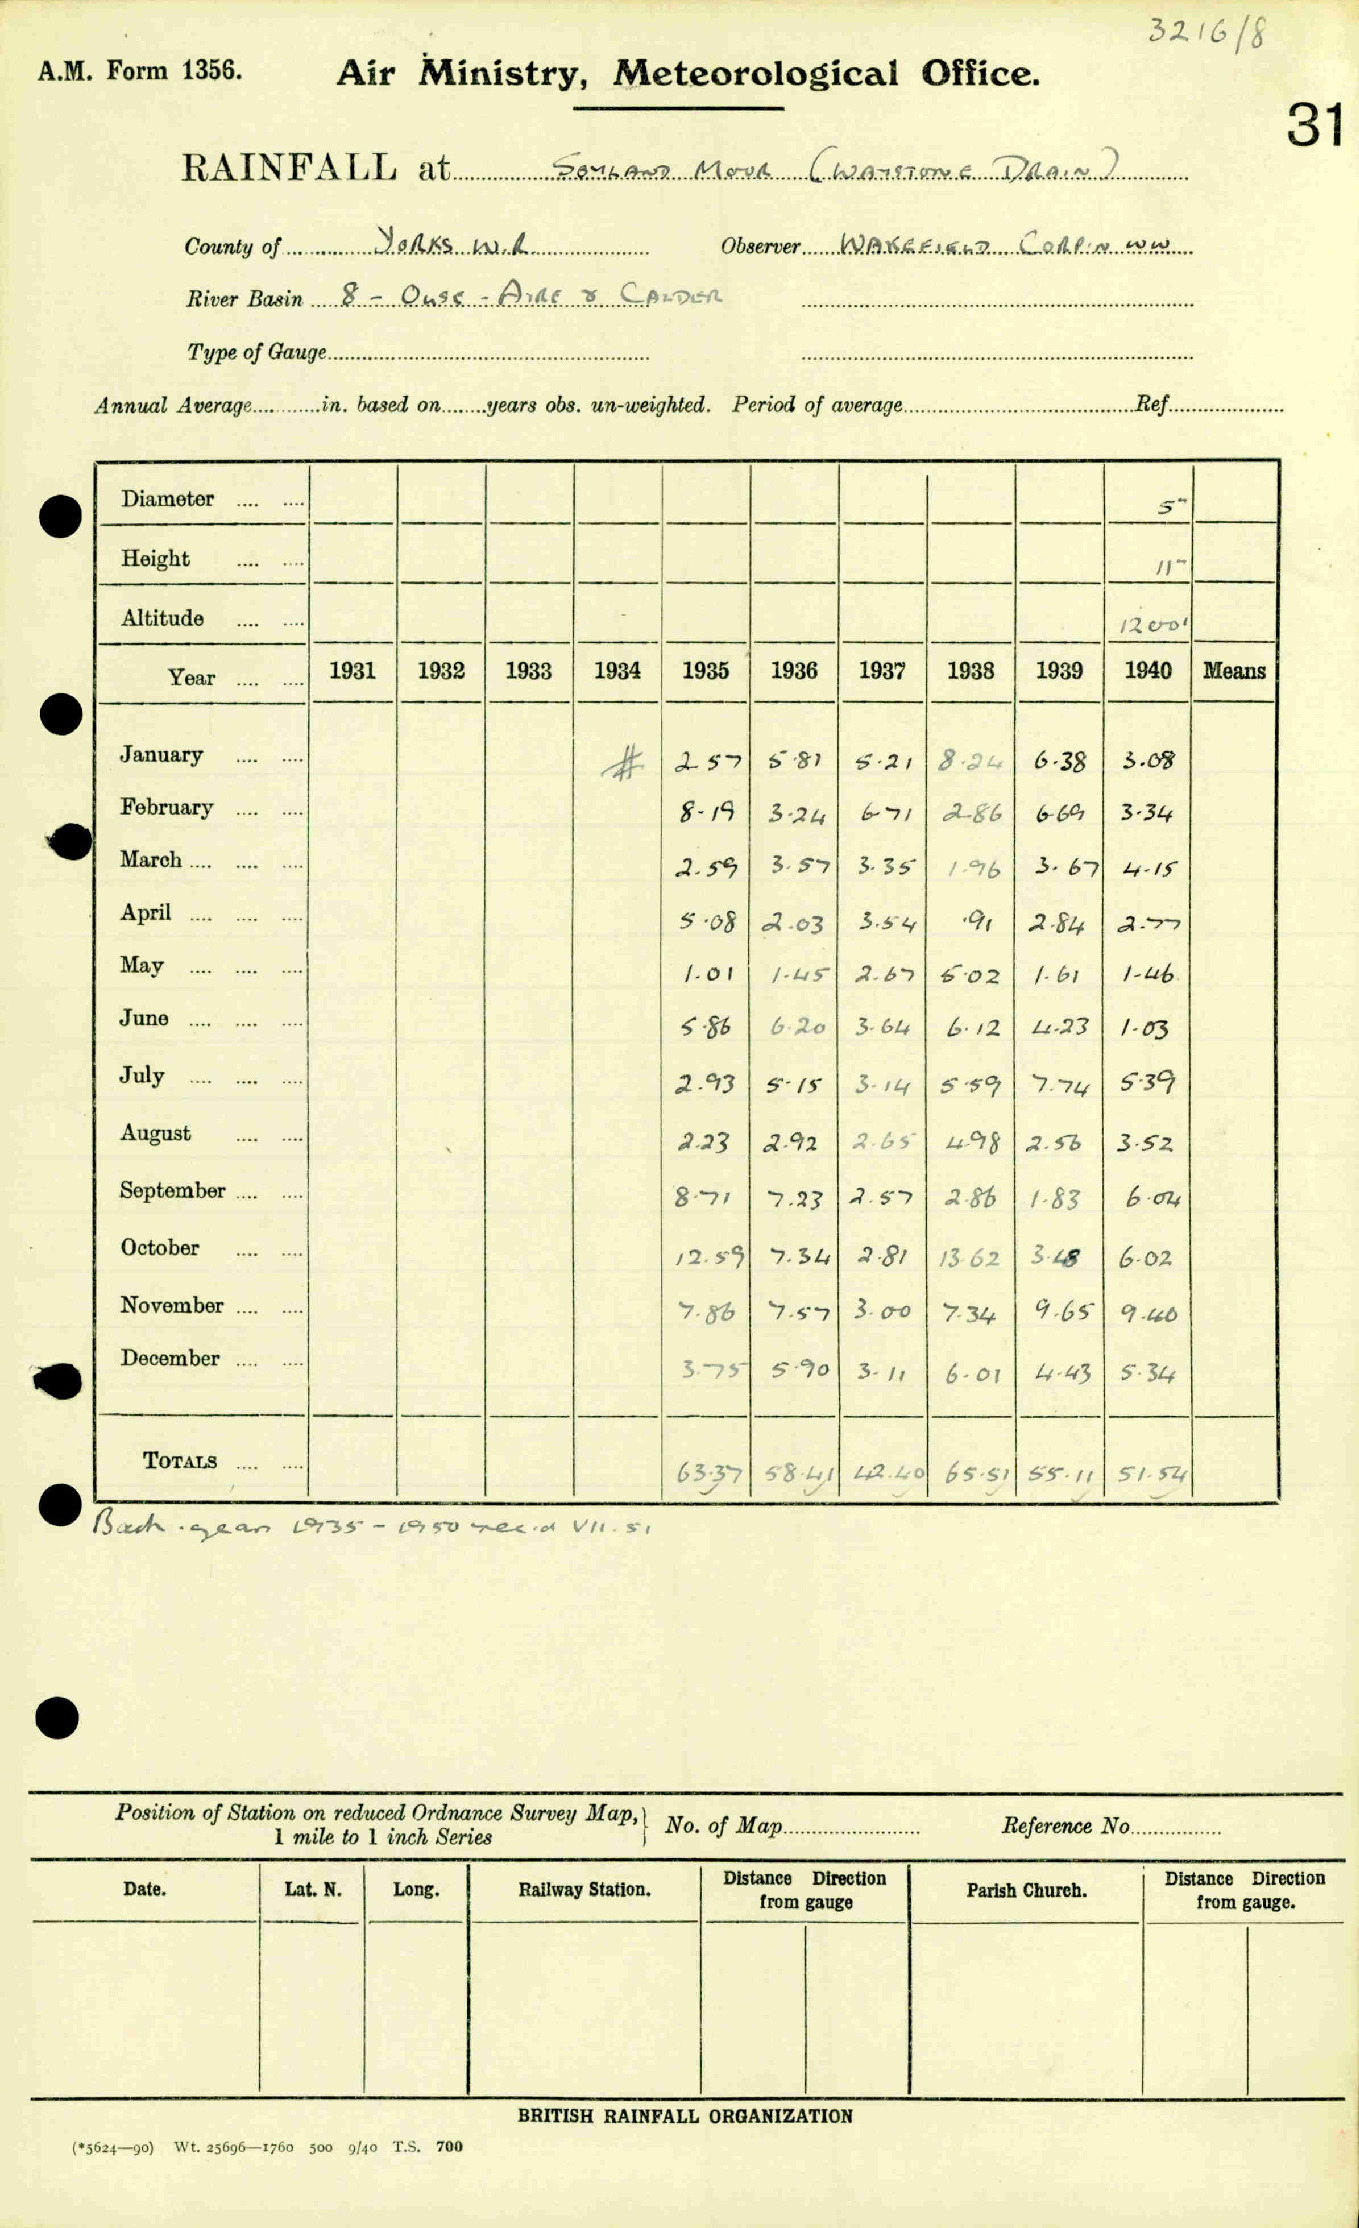 3216/8
A.M. Form 1356. Air Ministry, Meteorological Office.
31
RAINFALL at SOYLAND MOOR (WAYSTONE DRAIN)
County of YORKS W.R. Observer WAKEFIELD CORP'N WW
River Basin 8 - OUSE - AIRE & CALDER
Type of Gauge
Annual Average in. based on years obs. un-weighted. Period of average Ref.
Diameter 5"
Height 11"
Altitude 1200'
Year 1931 1932 1933 1934 1935 1936 1937 1938 1939 1940 Means
January # 2.57 5.81 5.21 8.24 6.38 3.08
February 8.19 3.24 6.71 2.86 6.69 3.34
March 2.59 3.57 3.35 1.96 3.67 4.15
April 5.08 2.03 3.54 .91 2.84 2.77
May 1.01 1.45 2.67 5.02 1.61 1.46
June 5.86 6.20 3.64 6.12 4.23 1.03
July 2.93 5.15 3.14 5.59 7.74 5.39
August 2.23 2.92 2.65 4.98 2.56 3.52
September 8.71 7.23 2.57 2.86 1.83 6.04
October 12.59 7.34 2.81 13.62 3.48 6.02
November 7.86 7.57 3.00 7.34 9.65 9.40
December 3.75 5.90 3.11 6.01 4.43 5.34
TOTALS 63.37 58.41 42.40 65.51 55.11 51.54
Back years 1935 - 1950 rec'd VII.51
Position of Station on reduced Ordnance Survey Map, No. of Map Reference No.
1 mile to 1 inch Series
Date. Lat. N. Long. Railway Station. Distance Direction from gauge Parish Church. Distance Direction from gauge.
BRITISH RAINFALL ORGANIZATION
(*5624—90) Wt. 25696—1760 500 9/40 T.S. 700